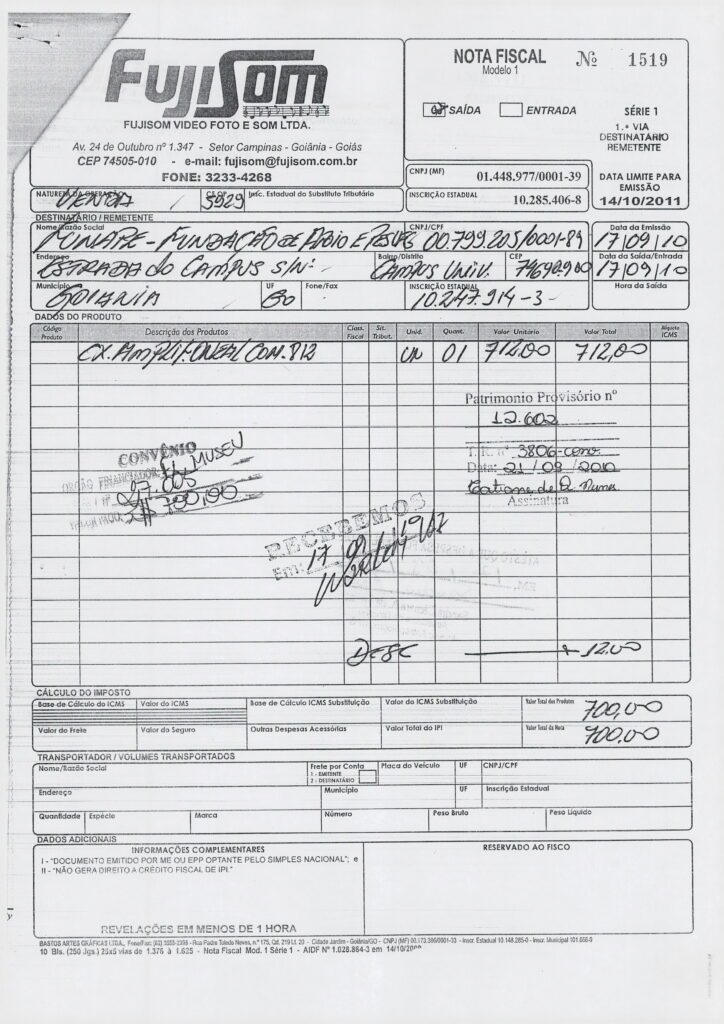 FujiSom
FUJISOM VIDEO FOTO E SOM LTDA.
Av. 24 de Outubro nº 1.347 - Setor Campinas - Goiânia - Goiás
CEP 74505-010 - e-mail: fujisom@fujisom.com.br
FONE: 3233-4268
NOTA FISCAL Nº 1519
Modelo 1
SAÍDA ENTRADA SÉRIE 1
1.ª VIA
DESTINATÁRIO
REMETENTE
CNPJ (MF) 01.448.977/0001-39
INSCRIÇÃO ESTADUAL 10.285.406-8
DATA LIMITE PARA
EMISSÃO
14/10/2011
NATUREZA DA OPERAÇÃO Insc. Estadual do Substituto Tributário
VENDA 5929
DESTINATÁRIO / REMETENTE
Nome/Razão Social CNPJ/CPF Data da Emissão
FUNAPE - FUNDAÇÃO DE APOIO E PESUQ 00.799.205/0001-89 17/09/10
Endereço Bairro/Distrito CEP Data da Saída/Entrada
ESTRADA DO CAMPUS S/Nº CAMPUS UNIV. 74690.900 17/09/10
Município UF Fone/Fax INSCRIÇÃO ESTADUAL Hora da Saída
GOIANIA GO 10.247.914-3
DADOS DO PRODUTO
Código Produto Descrição dos Produtos Class. Fiscal Sit. Tribut. Unid. Quant. Valor Unitário Valor Total Alíquota ICMS
CX. AMPLIF. ONEAL COM. 812 UN 01 712,00 712,00
Patrimonio Provisório nº
12.602
T. R. nº 3806-conv
Data: 21/09/2010
Tatiane de Q. Nunes
Assinatura
CONVÊNIO
ORGÃO FINANCIADOR MUSEU
17.005
R$ 700,00
RECEBEMOS
Em: 17/09/10
DESC 12,00
CÁLCULO DO IMPOSTO
Base de Cálculo do ICMS Valor do ICMS Base de Cálculo ICMS Substituição Valor do ICMS Substituição Valor Total dos Produtos
700,00
Valor do Frete Valor do Seguro Outras Despesas Acessórias Valor Total do IPI Valor Total da Nota
700,00
TRANSPORTADOR / VOLUMES TRANSPORTADOS
Nome/Razão Social Frete por Conta Placa do Veículo UF CNPJ/CPF
1 - EMITENTE
2 - DESTINATÁRIO
Endereço Município UF Inscrição Estadual
Quantidade Espécie Marca Número Peso Bruto Peso Líquido
DADOS ADICIONAIS
INFORMAÇÕES COMPLEMENTARES RESERVADO AO FISCO
I - "DOCUMENTO EMITIDO POR ME OU EPP OPTANTE PELO SIMPLES NACIONAL"; e
II - "NÃO GERA DIREITO A CRÉDITO FISCAL DE IPI."
REVELAÇÕES EM MENOS DE 1 HORA
BASTOS ARTES GRÁFICAS LTDA., Rua Padre Toledo Neves, n.º 175, Qd. 219 Lt. 20 - Cidade Jardim - Goiânia/GO
10 Bls. (250 Jgs.) 25x5 vias de 1.376 à 1.625 - Nota Fiscal Mod. 1 Série 1 - AIDF Nº 1.028.864-3 em 14/10/